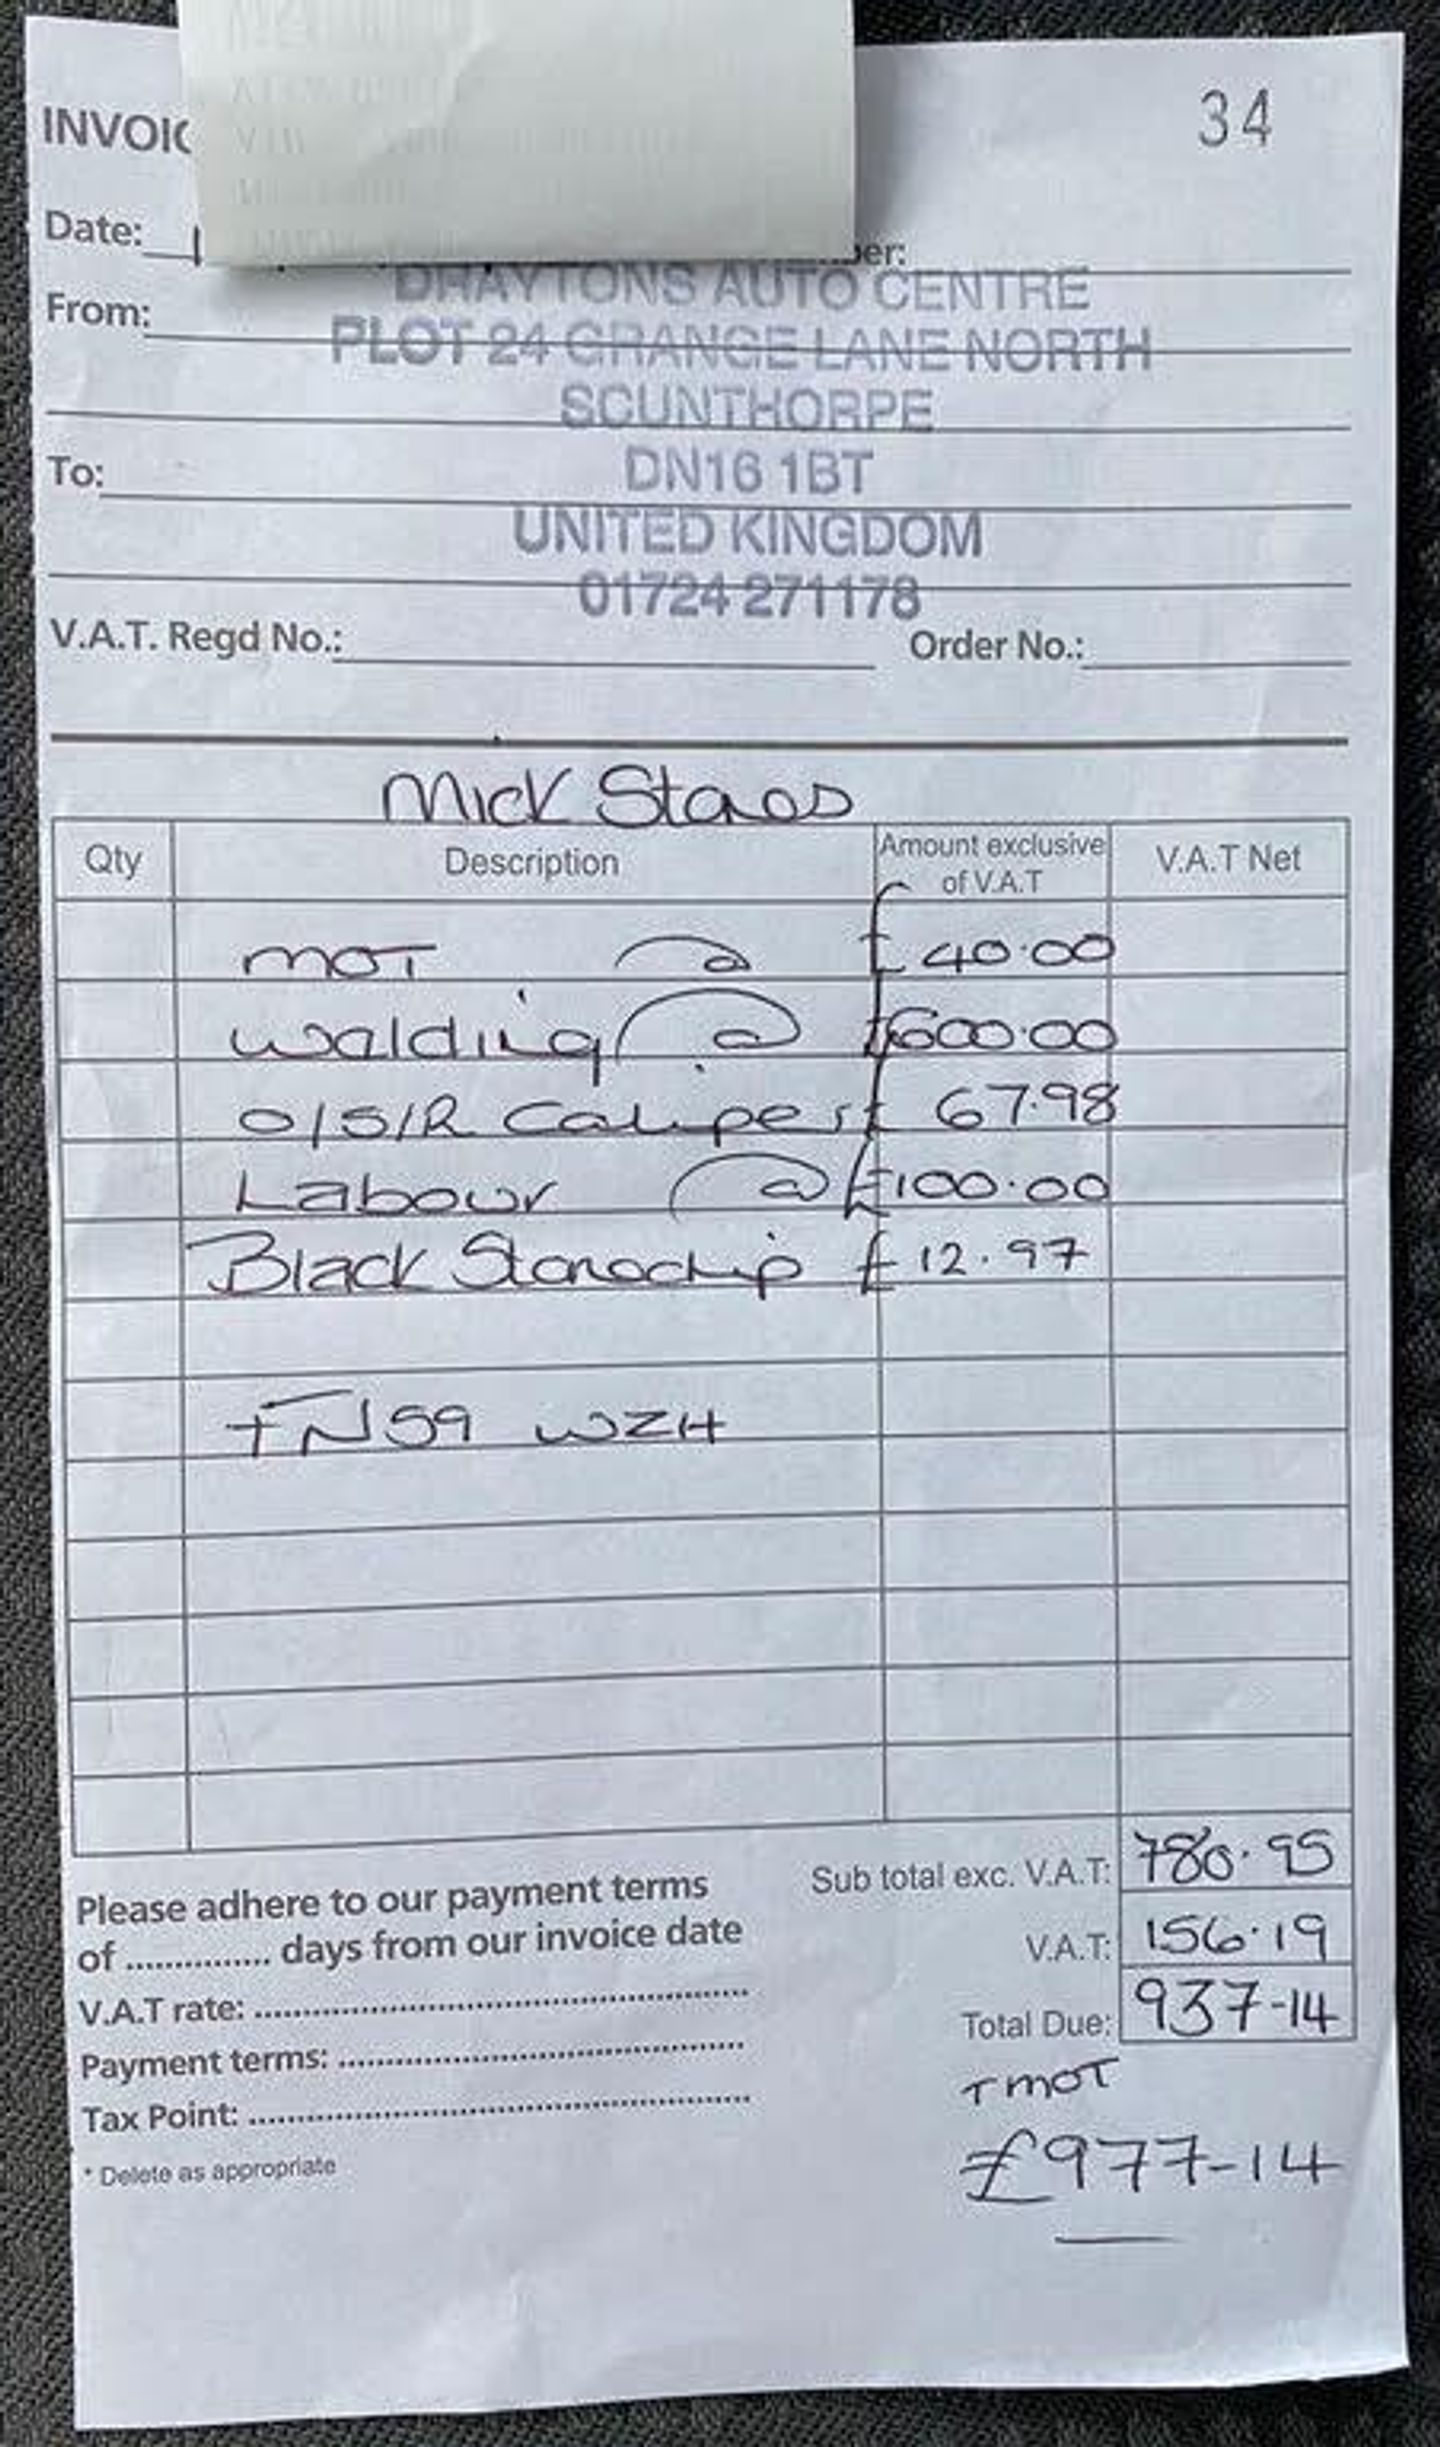 34
Date:
DRAYTONS AUTO CENTRE
From:
PLOT 24 GRANGE LANE NORTH
SCUNTHORPE
To:
DN16 1BT
UNITED KINGDOM
01724 271178
V.A.T. Regd No.: Order No.:
Mick
Qty Description Amount exclusive of V.A.T V.A.T Net
MOT @ £40.00
walding @ £600.00
O/S/R Caliper £ 67.98
Labour @ £100.00
Black Stonechip £12.97
FN59 WZH
Sub total exc. V.A.T: 780.95
Please adhere to our payment terms
of ............... days from our invoice date
V.A.T: 156.19
V.A.T rate:
Total Due: 937-14
Payment terms:
+ MOT
Tax Point:
£977-14
* Delete as appropriate